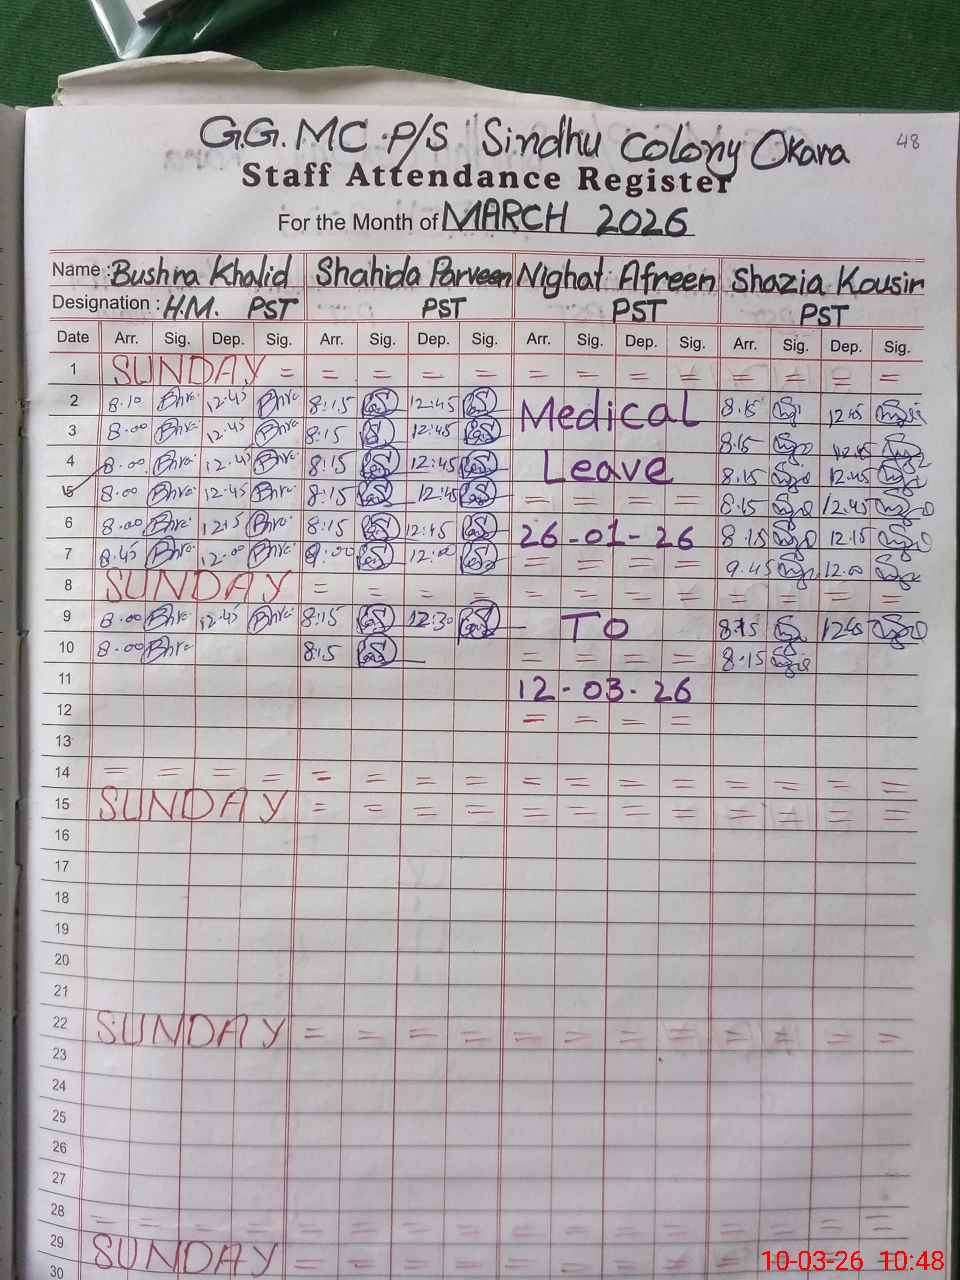 48
G.G.MC.P/S Sindhu Colony Okara
Staff Attendance Register
For the Month of MARCH 2026
Name : Bushra Khalid Shahida Parveen Nighat Afreen Shazia Kousir
Designation : H.M. PST PST PST PST
Date Arr. Sig. Dep. Sig. Arr. Sig. Dep. Sig. Arr. Sig. Dep. Sig. Arr. Sig. Dep. Sig.
1 SUNDAY = = = = = = = = = = = = =
2 8.10 12.45 8:15 12:45 Medical 8.15 12.45
3 8.00 12.45 8:15 12:45 8.15
4 8.00 12.45 8:15 12:45 Leave 8.15 12.45
5 8.00 12.45 8:15 12:45 = = = = 8.15 12.45
6 8.00 12.15 8:15 12:45 26-01-26 8.15 12.15
7 8.45 12.00 9:00 12:00 = = = = 9.45 12.00
8 SUNDAY = = = = = = = = = = = =
9 8.00 12.45 8:15 12:30 TO 8.15 12.45
10 8.00 8:15 = = = = 8.15
11 12-03-26
12 = = = =
13
14 = = = = = = = = = = = = = = = =
15 SUNDAY = = = = = = = = = = = =
16
17
18
19
20
21
22 SUNDAY = = = = = = = = = = = =
23
24
25
26
27
28 = = = = = = = = = = = = = = = =
29 SUNDAY = = = = = = = = = = = =
30
10-03-26 10:48